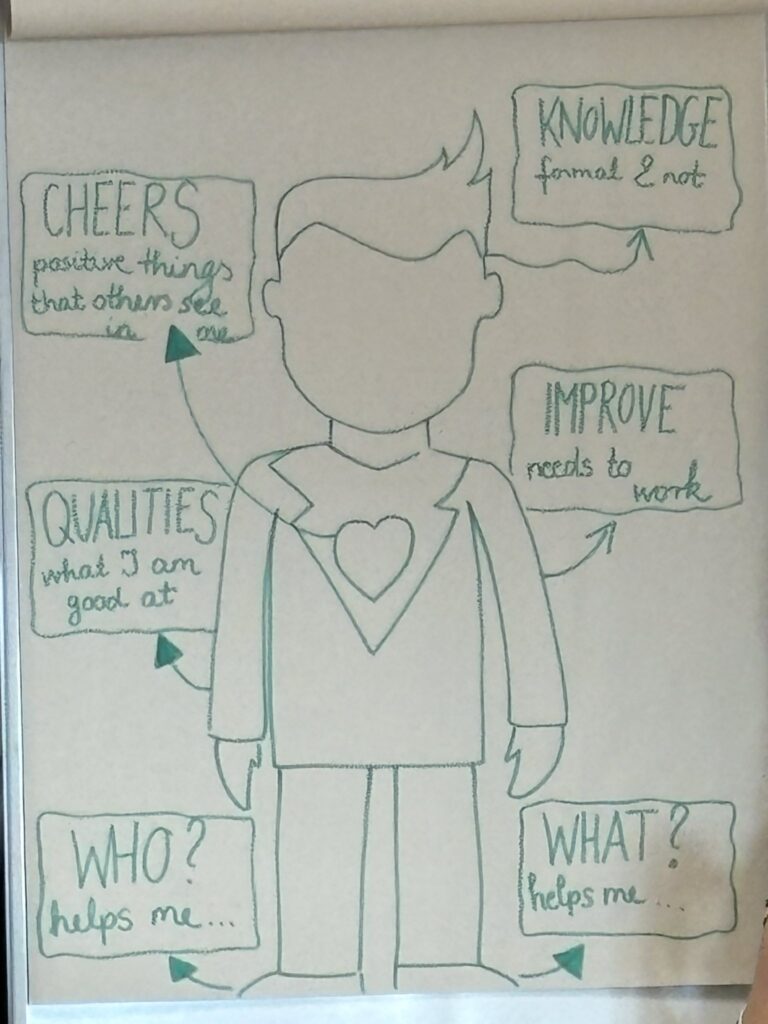 KNOWLEDGE
formal & not
CHEERS
positive things
that others see
in me
IMPROVE
needs to
work
QUALITIES
what I am
good at
WHO?
helps me...
WHAT?
helps me...